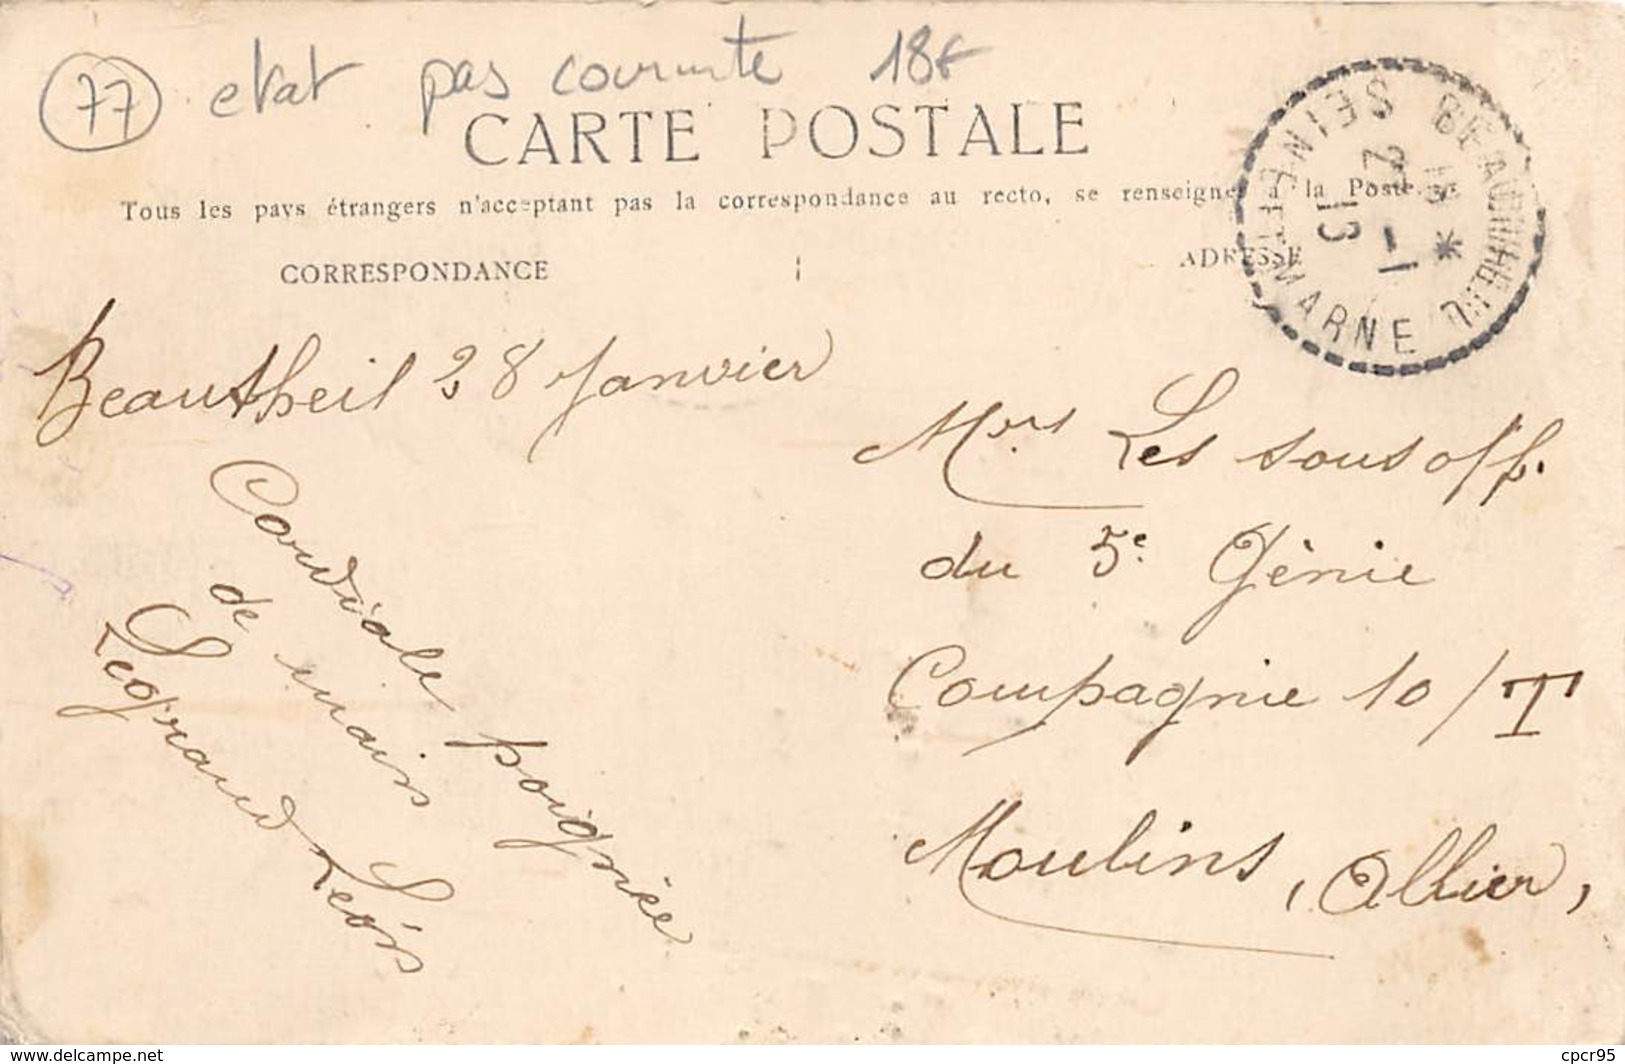 77 etat pas courante 18F
CARTE POSTALE
Tous les pays étrangers n'acceptant pas la correspondance au recto, se renseigner à la Poste.
CORRESPONDANCE
ADRESSE
SEINE-ET-MARNE
27 - 1
Beautheil 28 Janvier
Cordiale poignée
de mains
Legrand Léon
Mrs Les sous off.
du 5e Génie
Compagnie 10/T
Moulins, Allier,
www.delcampe.net
cpcr95